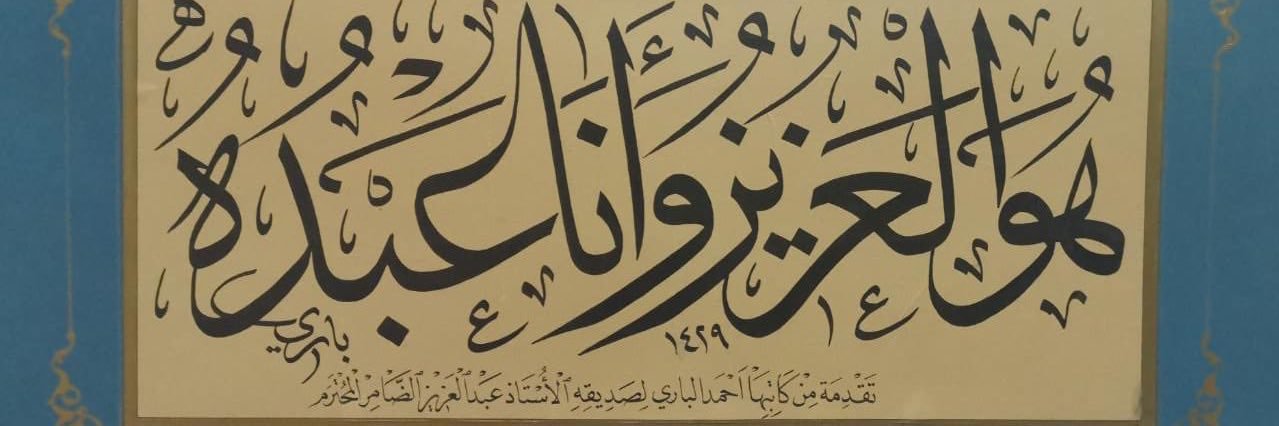 هُوَ الْعَزِيزُ وَأَنَا عَبْدُهُ
باري
١٤٢٩
تَقْدِمَة مِنْ كَاتِبِهَا أَحْمَد الباري لِصَدِيقِهِ الْأُسْتَاذ عَبْدالْعَزِيز الضَّامِر الْمُحْتَرَم